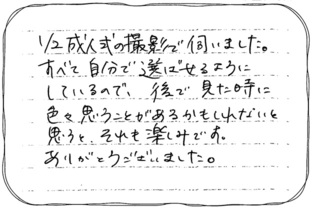 1/2成人式の撮影で伺いました。
すべて自分で選ばせるように
しているので、後で見た時に
色々思うことがあるかもしれないと
思うと、それも楽しみです。
ありがとうございました。